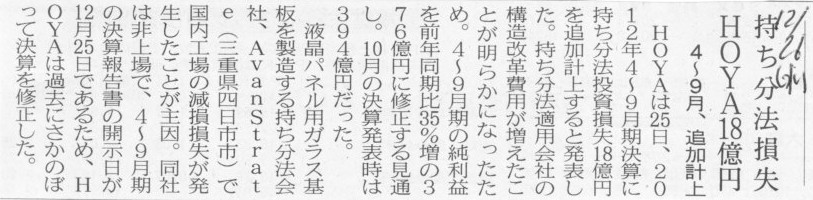 12/26
持ち分法損失
HOYA18億円
4〜9月、追加計上
HOYAは25日、20
12年4〜9月期決算に
持ち分法投資損失18億円
を追加計上すると発表し
た。持ち分法適用会社の
構造改革費用が増えたこ
とが明らかになったた
め。4〜9月期の純利益
を前年同期比35%増の3
76億円に修正する見通
し。10月の決算発表時は
394億円だった。
液晶パネル用ガラス基
板を製造する持ち分法会
社、AvanStrat
e(三重県四日市市)で
国内工場の減損損失が発
生したことが主因。同社
は非上場で、4〜9月期
の決算報告書の開示日が
12月25日であるため、H
OYAは過去にさかのぼ
って決算を修正した。